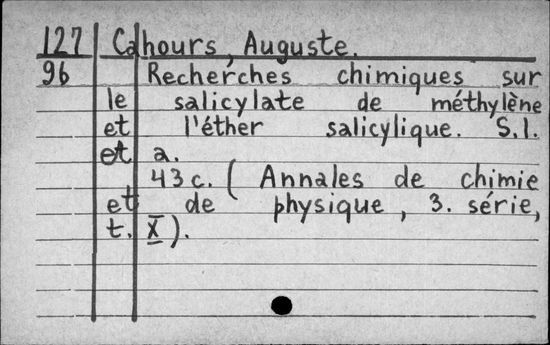 127 Cahours, Auguste.
96 Recherches chimiques sur
le salicylate de méthylène
et l'éther salicylique. S.l.
et a.
43 c. ( Annales de chimie
et de physique, 3. série,
t. X ).